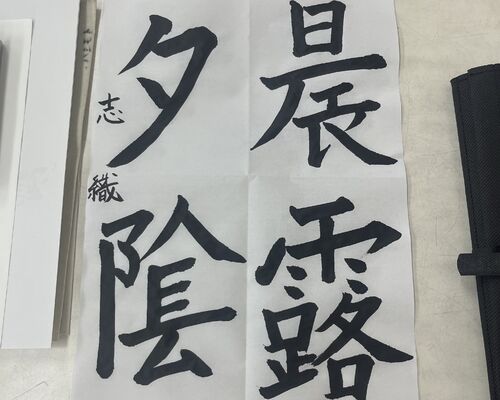 晨露
夕陰
志織